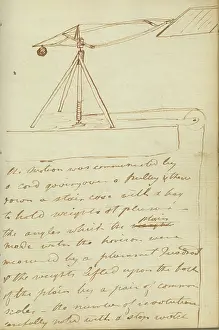 the motion was communicated by
a cord going over a pulley & then
down a stair case with a bag
to hold weights at pleasure —
the angles which the plain
made with the horizon were
measured by a plummet & quadrant
& the weights lifted upon the back
of the plain by a pair of common
scales — the number of revolutions
carefully noted with a stop watch